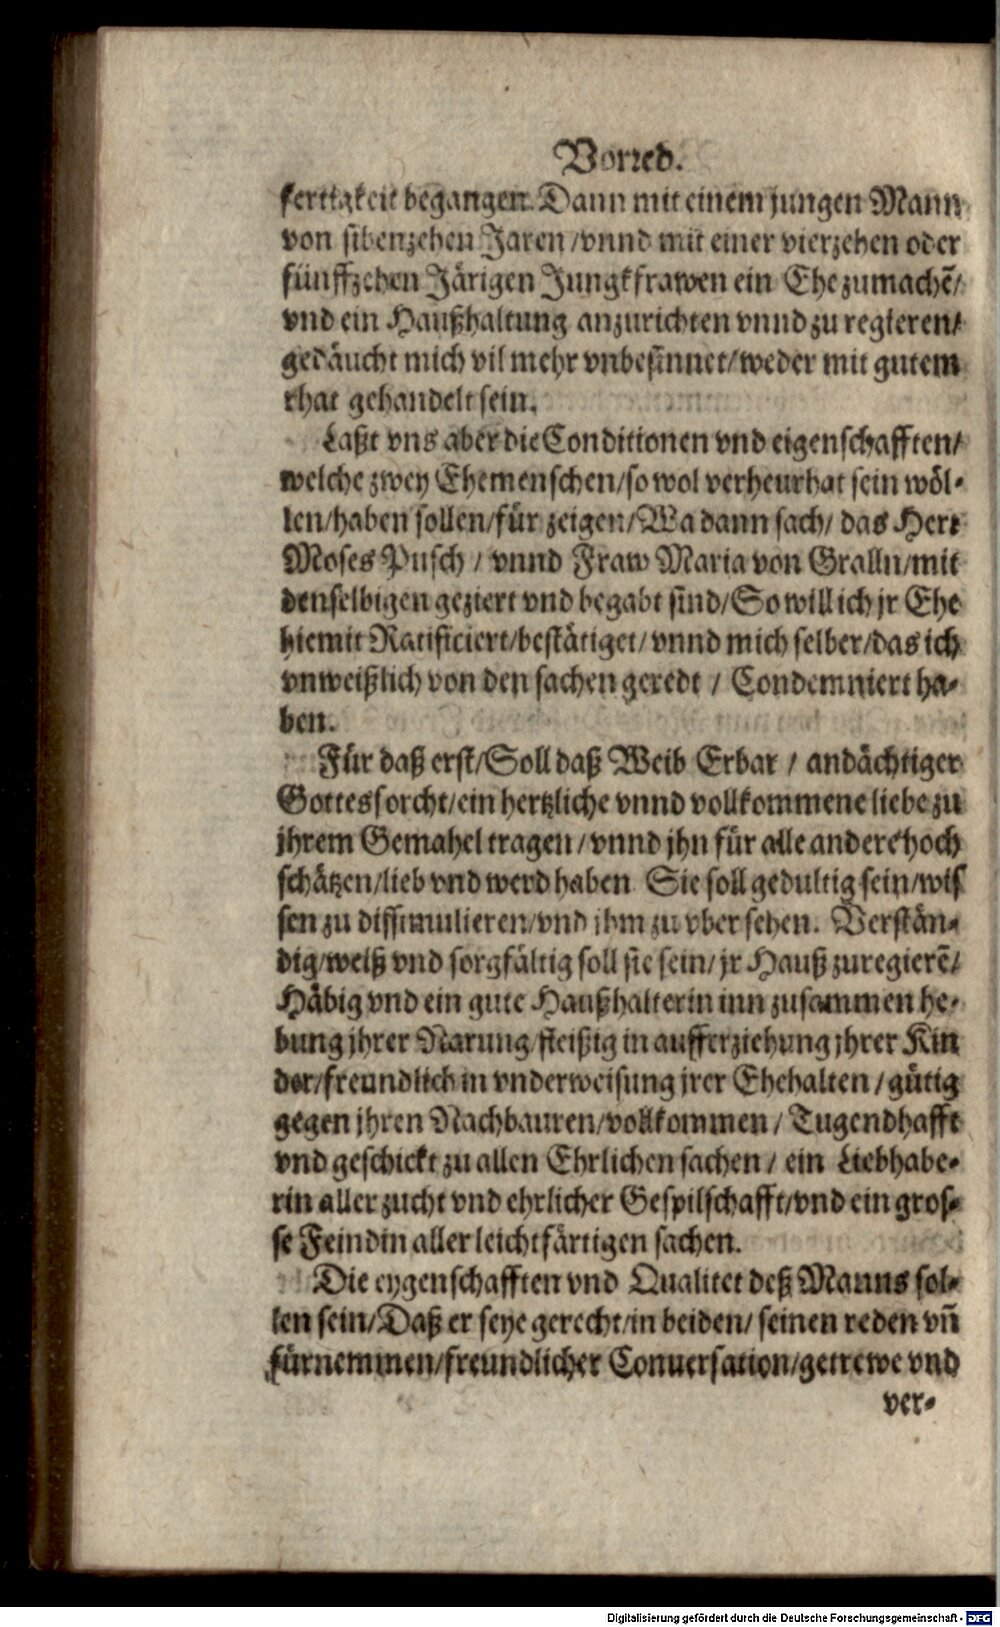 Vorred.
fertigkeit begangen. Dann mit einem jungen Mann
von sibenzehen Jaren / vnnd mit einer vierzehen oder
fünffzehen Järigen Jungkfrawen ein Ehe zumachẽ/
vnd ein Haußhaltung anzurichten vnnd zu regieren/
gedäucht mich vil mehr vnbesinnet/weder mit gutem
rhat gehandelt sein.
Laßt vns aber die Conditionen vnd eigenschafften/
welche zwey Ehemenschen/so wol verheurhat sein wöl-
len/haben sollen/für zeigen/Wa dann sach/ das Herr
Moses Pusch / vnnd Fraw Maria von Gralln/mit
denselbigen geziert vnd begabt sind/So will ich jr Ehe
hiemit Ratificiert/bestätiget/ vnnd mich selber/das ich
vnweißlich von den sachen geredt / Condemniert ha-
ben.
Für daß erst/Soll daß Weib Erbar / andächtiger
Gottesforcht/ein hertzliche vnnd vollkommene liebe zu
jhrem Gemahel tragen / vnnd jhn für alle andere hoch
schätzen/lieb vnd werd haben Sie soll gedultig sein/wis
sen zu dissimulieren/vnd jhm zu vbersehen. Verstän-
dig/weiß vnd sorgfältig soll sie sein/ jr Hauß zuregierẽ/
Häbig vnd ein gute Haußhalterin inn zusammen he-
bung jhrer Narung/fleißig in aufferziehung jhrer Kin
der/freundlich in vnderweisung jrer Ehehalten / gütig
gegen jhren Nachbauren/vollkommen / Tugendhafft
vnd geschickt zu allen Ehrlichen sachen / ein Liebhabe-
rin aller zucht vnd ehrlicher Gespilschafft/vnd ein gros-
se Feindin aller leichtfärtigen sachen.
Die eygenschafften vnd Qualitet deß Manns sol-
len sein/Daß er seye gerecht/in beiden/ seinen reden vñ
fürnemmen/freundlicher Conuersation/getrewe vnd
ver-
Digitalisierung gefördert durch die Deutsche Forschungsgemeinschaft - DFG